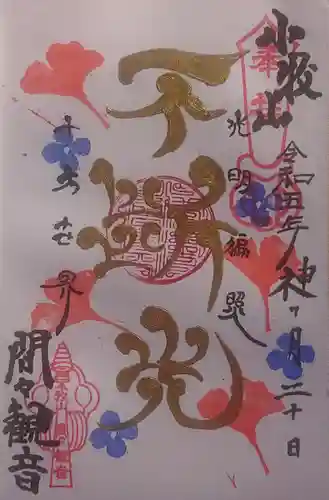 奉拝
小牧山
令和五年神ヶ月二十日
光明徧照
不断光
十方世界
間々観音